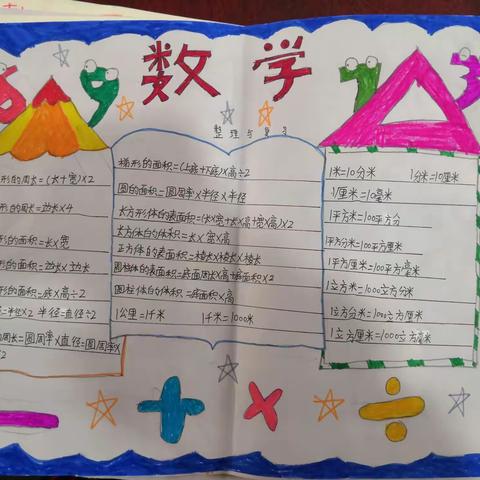 数学
整理与复习
形的周长=(长+宽)×2
形的周长=边长×4
形的面积=长×宽
形的面积=边长×边长
形的面积=底×高÷2
=半径×2 半径=直径÷2
周长=圆周率×直径=圆周率×
2
梯形的面积=(上底+下底)×高÷2
圆的面积=圆周率×半径×半径
长方形体的表面积=(长×宽+长×高+宽×高)×2
长方体的体积=长×宽×高
正方体的表面积=棱长×棱长×棱长
圆柱体的表面积=底面周长×高+底面积×2
圆柱体的体积=底面积×高
1公里=1千米 1千米=1000米
1米=10分米 1分米=10厘米
1厘米=10毫米
1平方米=100平方分
1平方分米=100平方厘米
1平方厘米=100平方毫米
1立方米=1000立方分米
1立方分米=1000立方厘米
1立方厘米=1000立方毫米